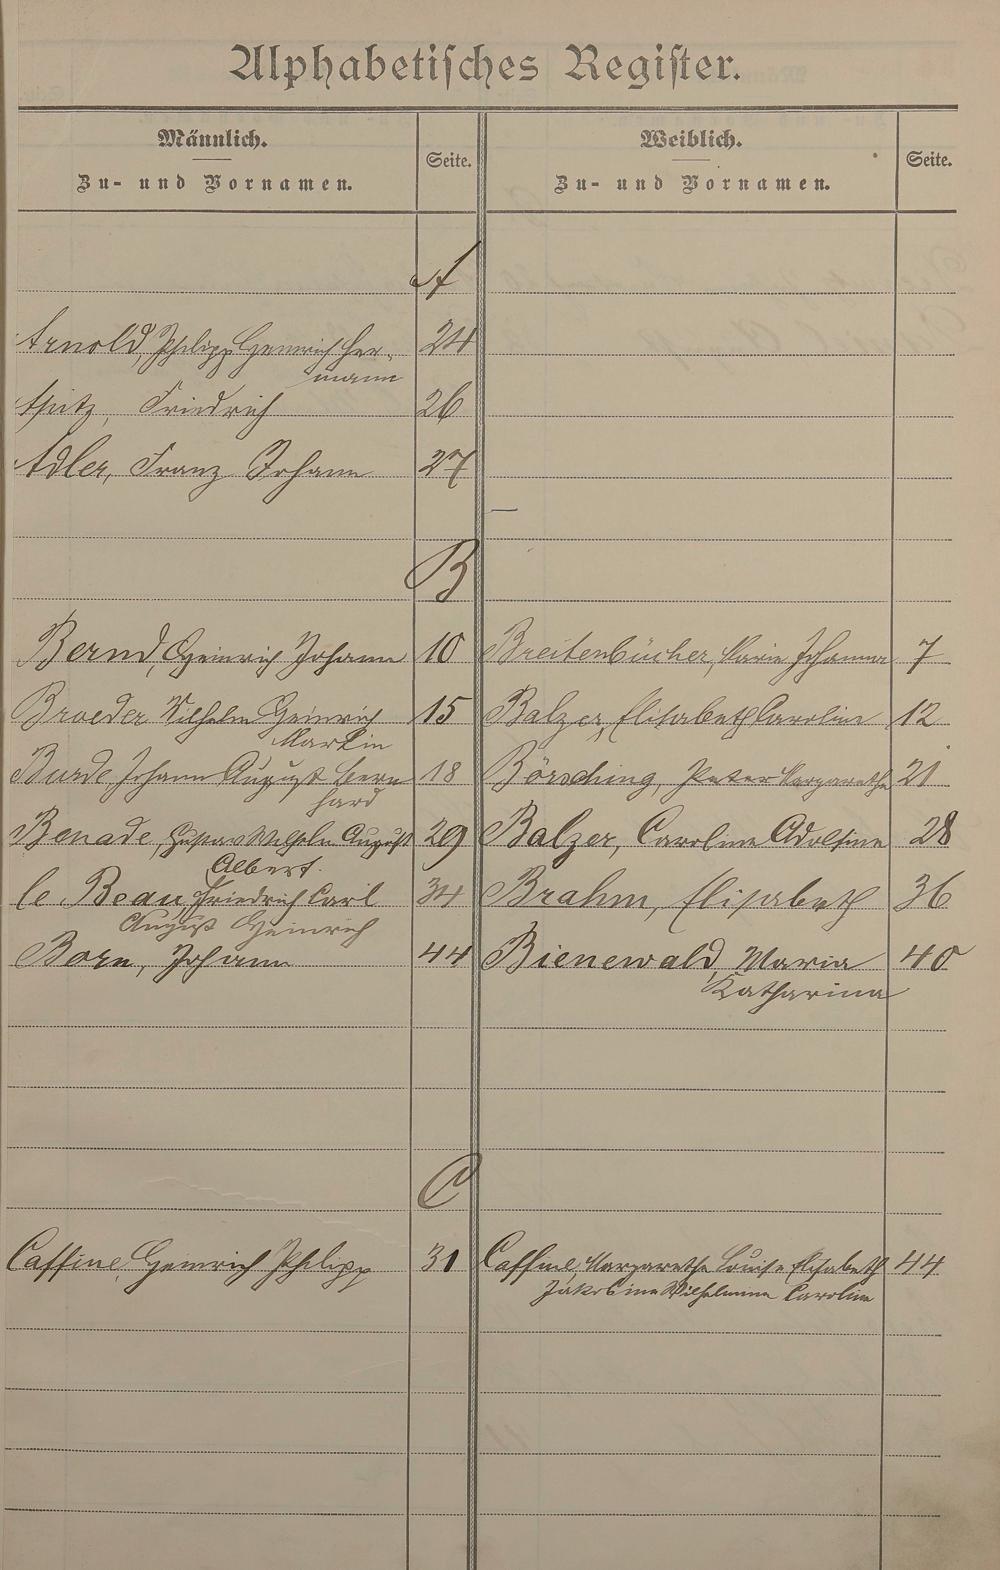 Alphabetisches Register.
Männlich. Seite. Weiblich. Seite.
Zu- und Vornamen. Zu- und Vornamen.
A
Arnold, Philipp Heinrich Her- 24
mann
Friedrich 26
Adler, Franz Johann 27
B
Bernd, Heinrich Johann 10 Breitenbücher, Marie Johanna 7
Broeder Wilhelm Heinrich 15 Balzer, Elisabeth Carolin 12
Martin
Burde, Johann August Bern 18 Börsching, Peter Margarethe 21
hard
Benade, Gustav Wilhelm August 29 Balzer, Caroline Adolfine 28
Albert
le Beau, Friedrich Carl 34 Brahm, Elisabeth 36
August Heinrich
Born, Johann 44 Bienewald, Maria 40
Katharina
C
Caffine, Heinrich Philipp 31 Caffine, Margarethe Louise Elisabeth 44
Jakobine Wilhelmine Caroline